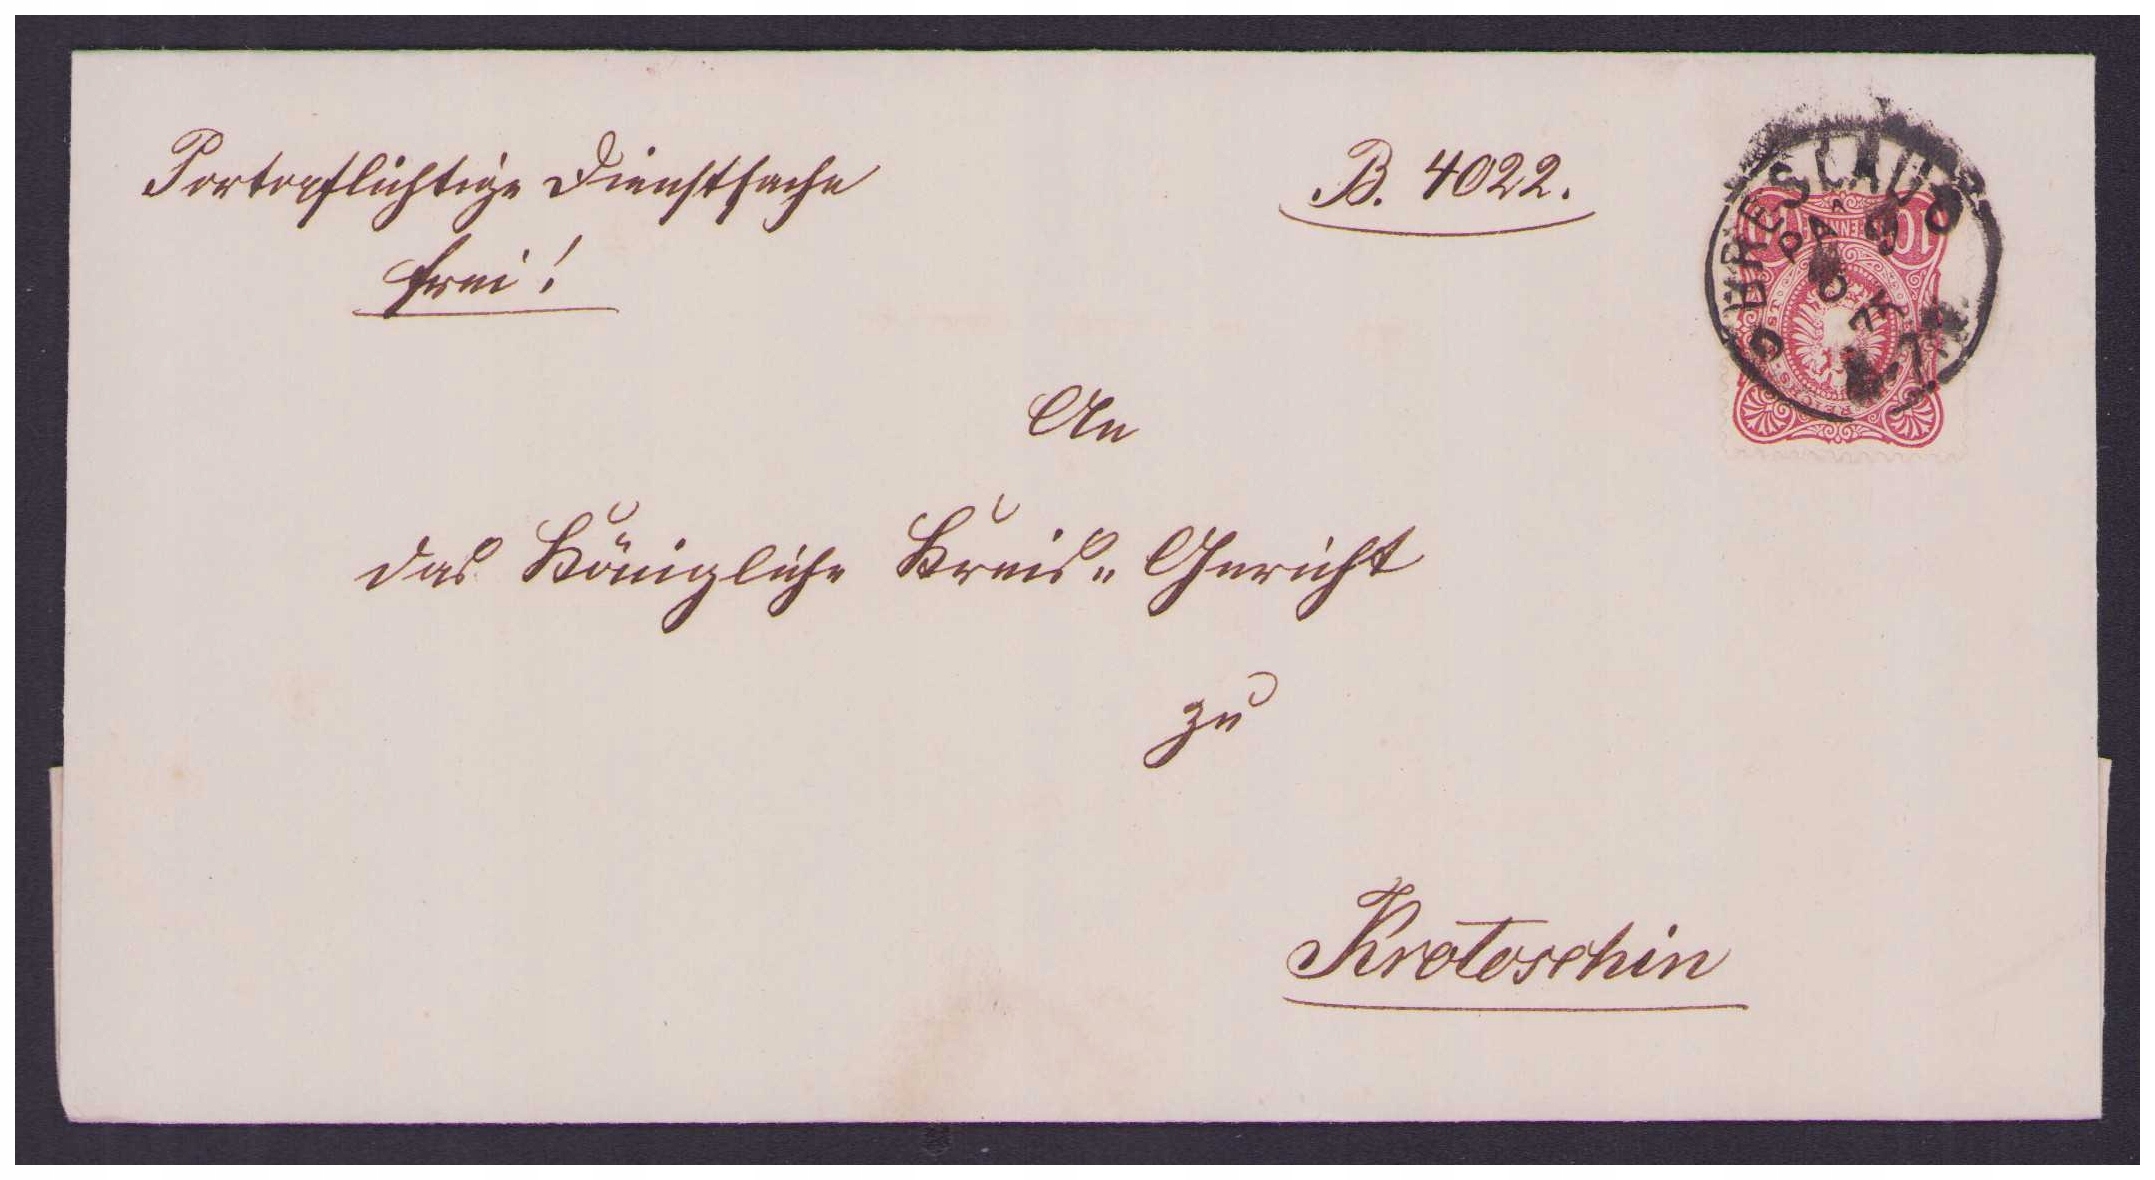 Portopflichtige Dienstsache
frei!
B. 4022.
BRESLAU
10
An
das Königliche Kreis-Gericht
zu
Krotoschin